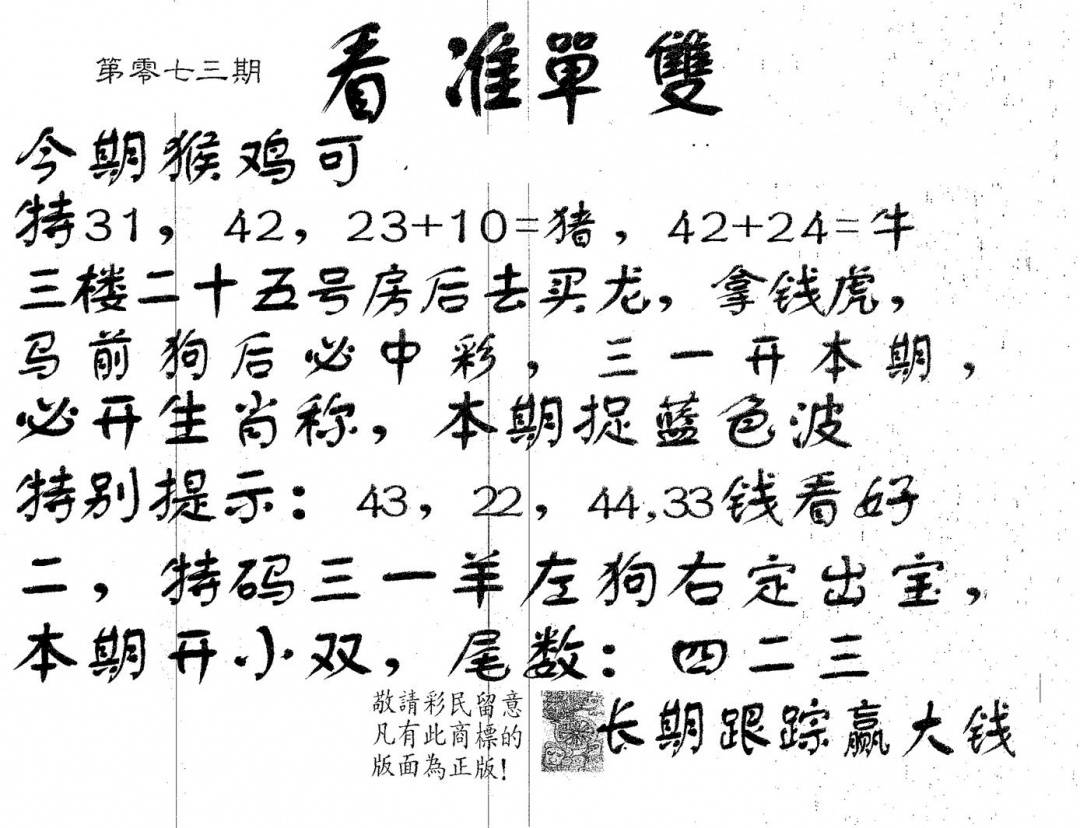 第零七三期
看准單雙
今期猴鸡可
特31，42，23+10=猪，42+24=牛
三楼二十五号房后去买龙，拿钱虎，
马前狗后必中彩，三一开本期，
必开生肖称，本期捉蓝色波
特别提示：43，22，44,33钱看好
二，特码三一羊左狗右定出宝，
本期开小双，尾数：四二三
敬請彩民留意
凡有此商標的
版面為正版！
长期跟踪赢大钱